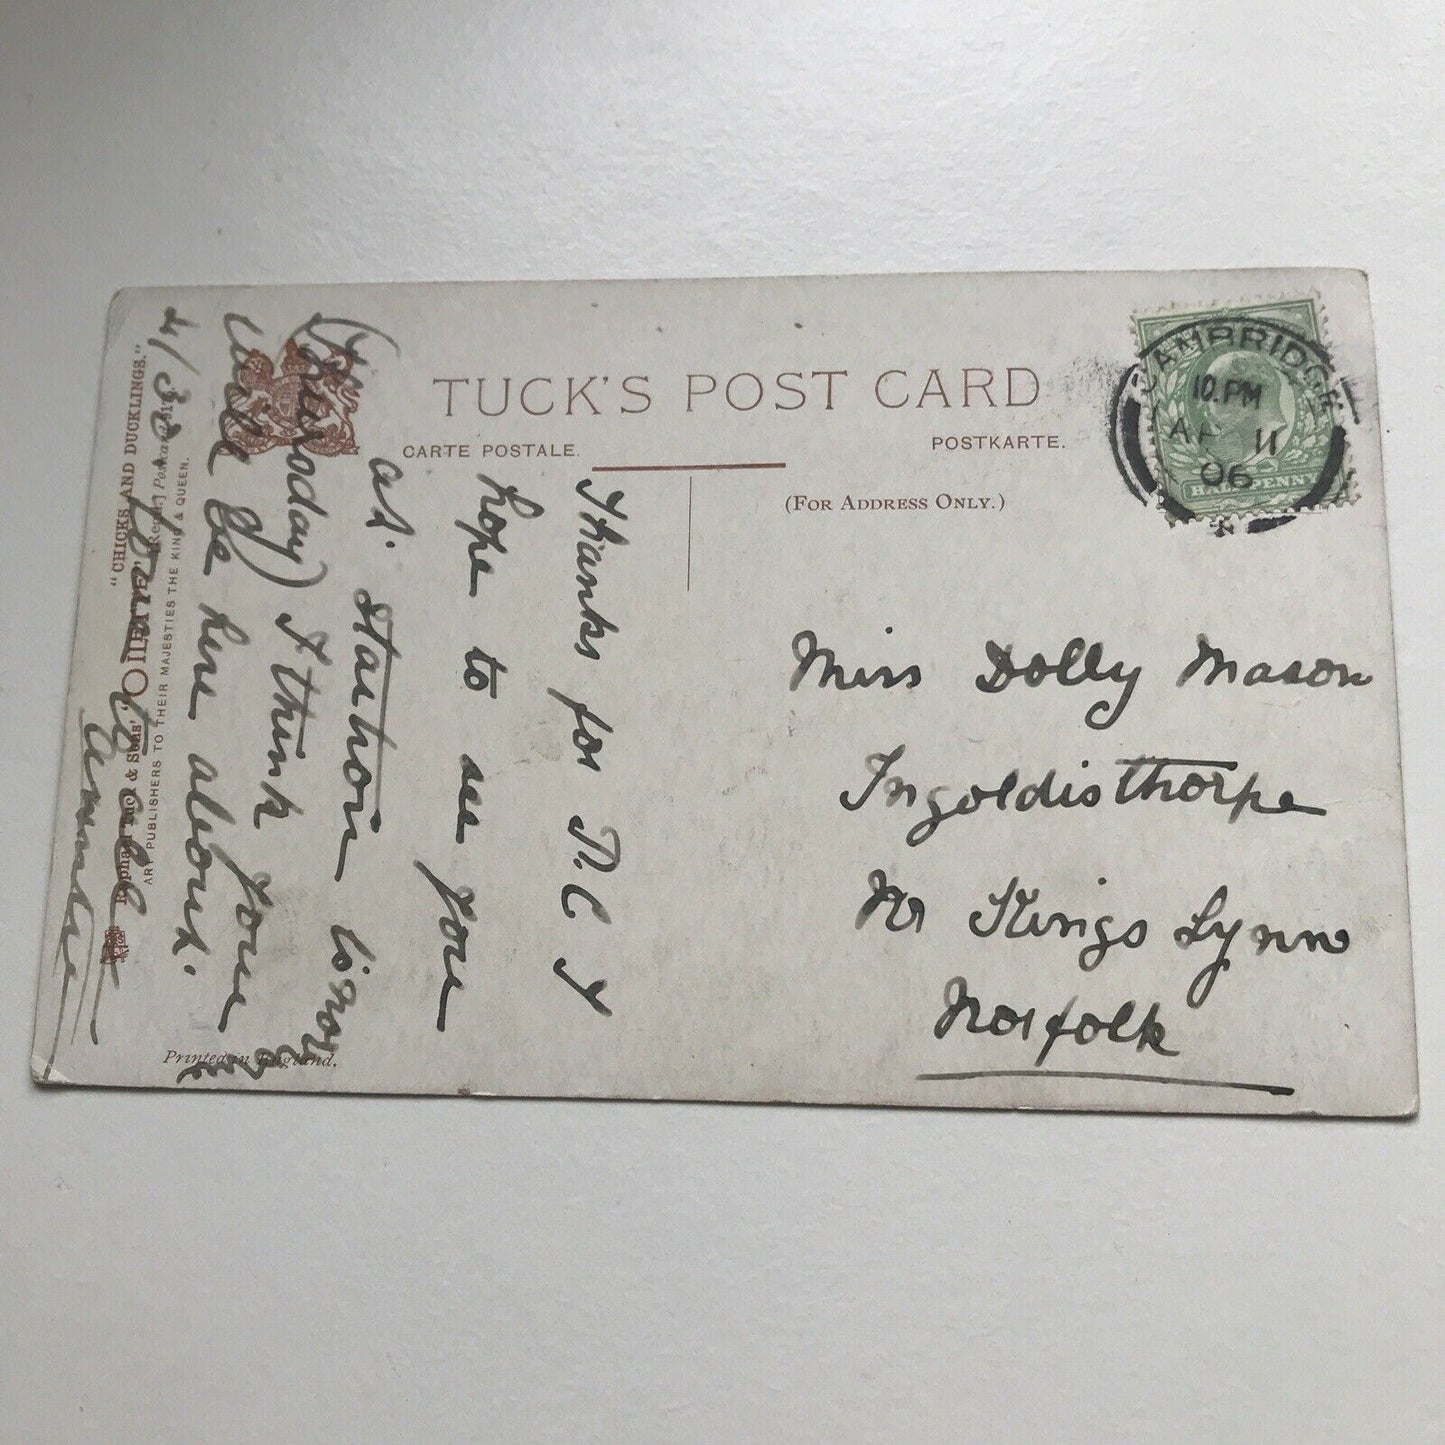 TUCK'S POST CARD
CARTE POSTALE.
POSTKARTE.
(FOR ADDRESS ONLY.)
CAMBRIDGE
10. PM
AP 11
06
HALFPENNY
Miss Dolly Mason
Ingoldisthorpe
Nr Kings Lynn
Norfolk
Thanks for P.C I
hope to see you
at. Station
(Thursday) I think you
will be here about.
4/30.
"CHICKS AND DUCKLINGS."
Raphael Tuck & Sons' "OILETTE" [Regd.] Postcard
ART PUBLISHERS TO THEIR MAJESTIES THE KING & QUEEN.
Printed in England.